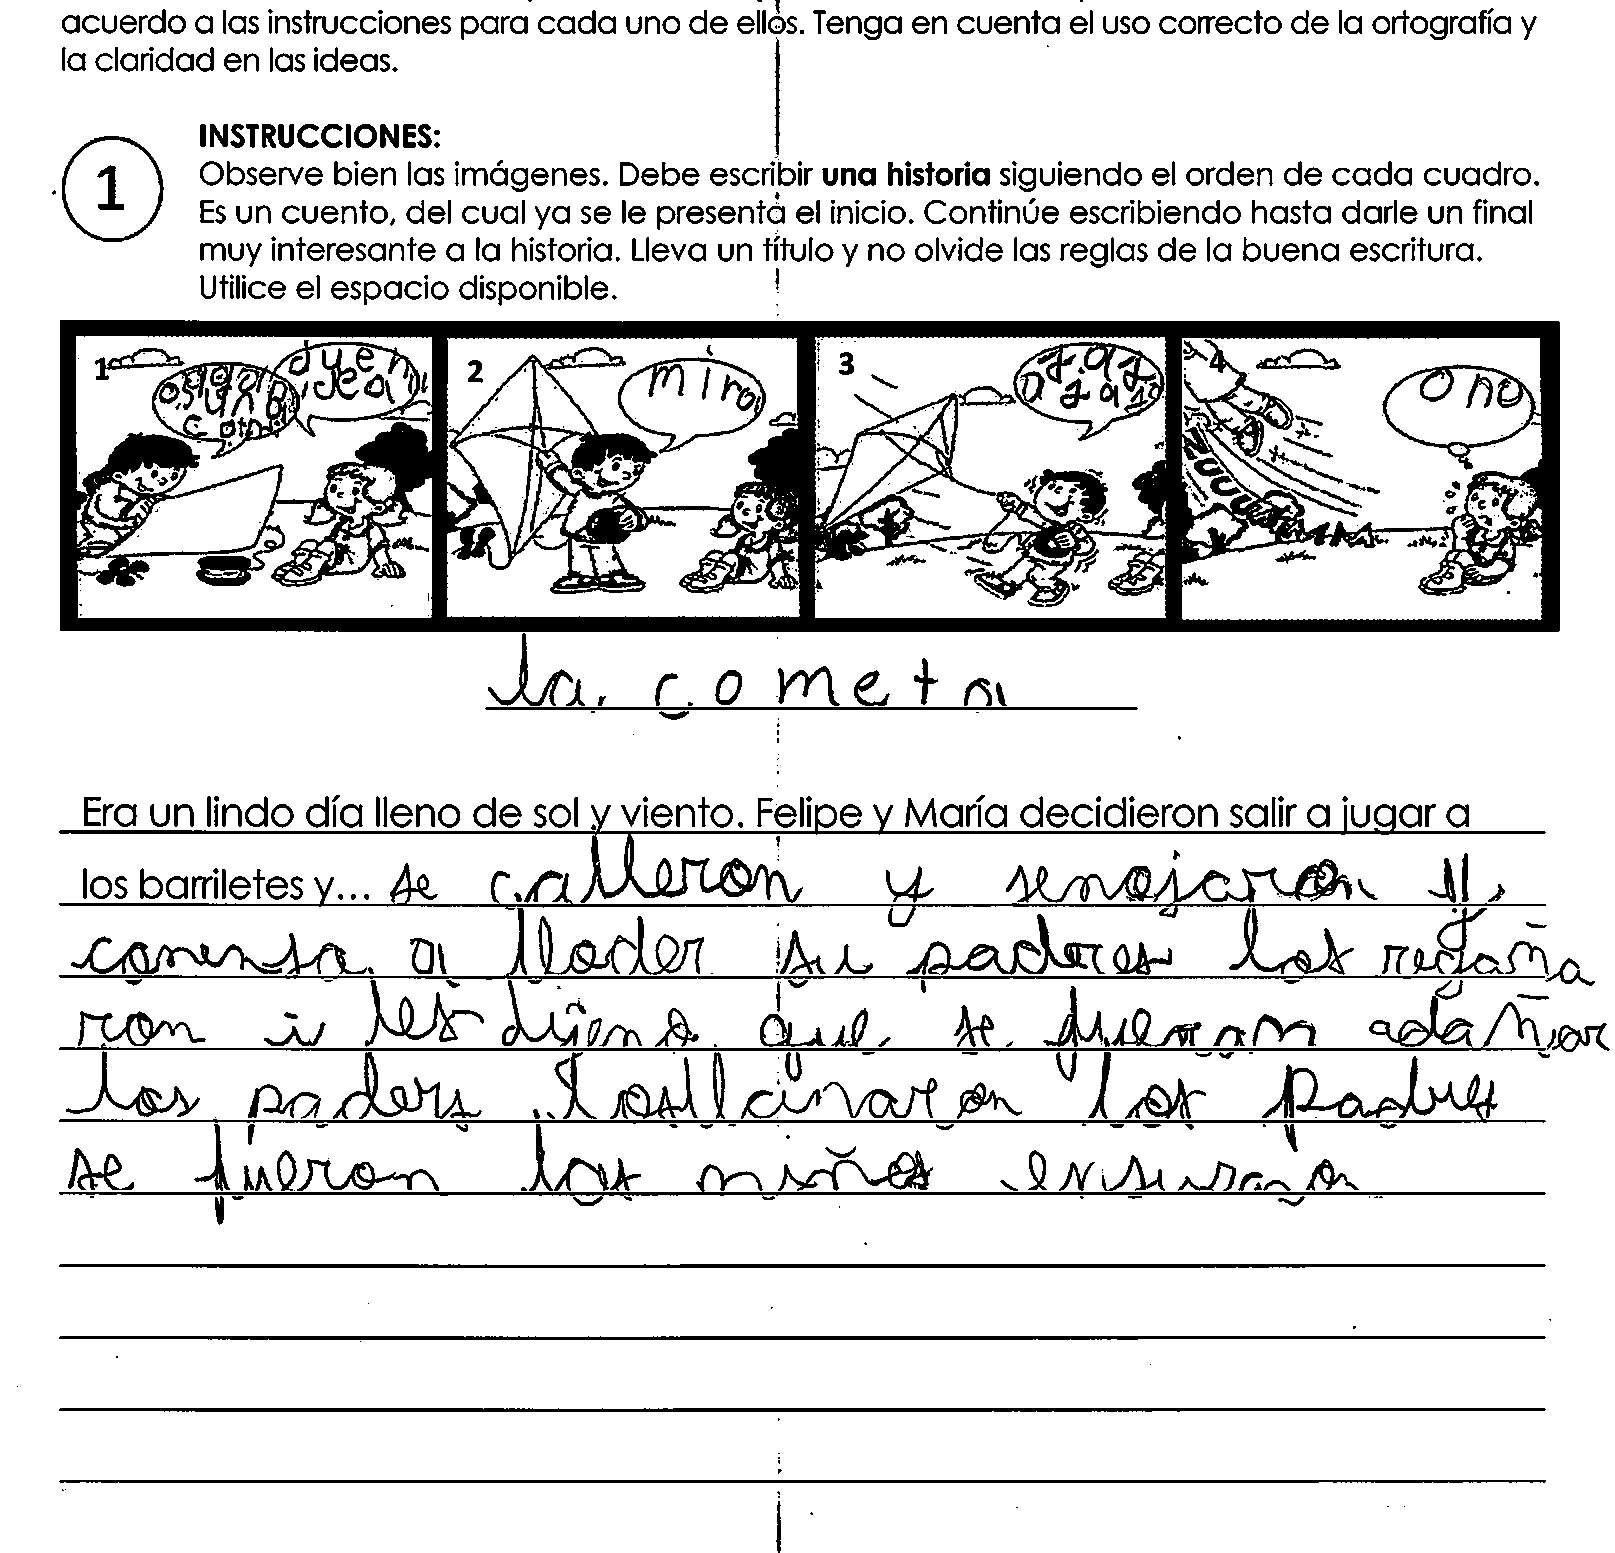 acuerdo a las instrucciones para cada uno de ellos. Tenga en cuenta el uso correcto de la ortografía y
la claridad en las ideas.
1
INSTRUCCIONES:
Observe bien las imágenes. Debe escribir una historia siguiendo el orden de cada cuadro.
Es un cuento, del cual ya se le presenta el inicio. Continúe escribiendo hasta darle un final
muy interesante a la historia. Lleva un título y no olvide las reglas de la buena escritura.
Utilice el espacio disponible.
1
duen
idea
2
mira
3
jaj
ajaja
4
o no
ZUUU
la cometa
Era un lindo día lleno de sol y viento. Felipe y María decidieron salir a jugar a
los barriletes y... se calleron y senojaron y
comensa a lloder su padres los regaña
ron i les dijens que se fueran adañar
los paders los los padres
se fueron los niños